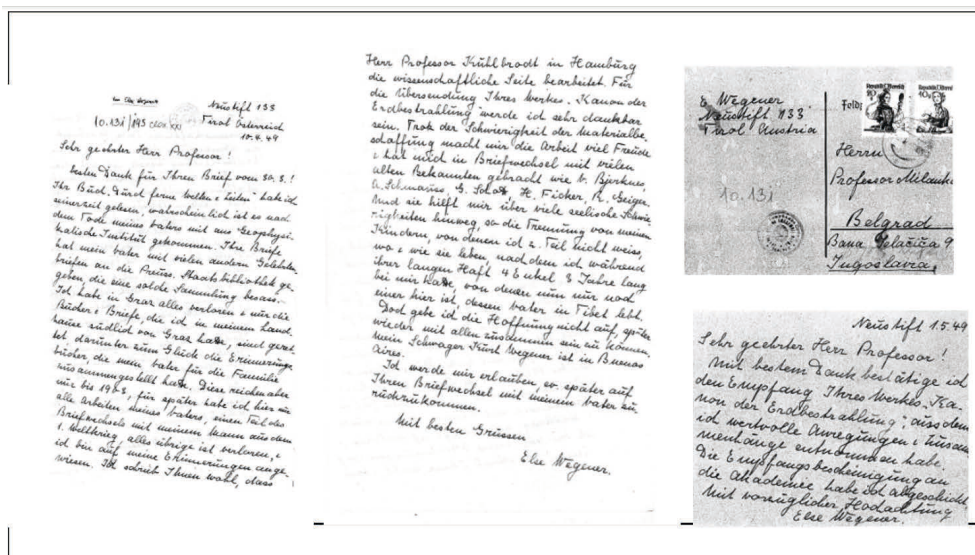 von Else Wegener
Neustift 133
Tirol Österreich
10.4.49
Sehr geehrter Herr Professor!
besten Dank für Ihren Brief vom 30.3.!
Ihr Buch "Durch ferne Welten & Zeiten" habe ich
seinerzeit gelesen, wahrscheinlich ist es nach
dem Tode meines Vaters mit ans Geophysi-
kalische Institut gekommen. Ihre Briefe
hat mein Vater mit vielen andern Gelehrten-
briefen an die Preuss. Staatsbibliothek ge-
geben, die eine solche Sammlung besass.
Ich habe in Graz alles verloren & nur die
Bücher & Briefe, die ich in meinem Land-
hause südlich von Graz hatte, sind geret-
tet darunter zum Glück die Erinnerungs-
bücher, die mein Vater für die Familie
zusammengestellt hatte. Diese reichen aber
nur bis für später habe ich hier nur
alle Arbeiten meines Vaters, einen Teil des
Briefwechsels mit meinem Mann aus dem
1. Weltkrieg, alles übrige ist verloren, &
ich bin auf meine Erinnerungen ange-
wiesen. Ich schrieb Ihnen wohl, dass
Herr Professor Kuhlbrodt in Hamburg
die wissenschaftliche Seite bearbeitet. Für
die Übersendung Ihres Werkes. Kanon der
Erdbestrahlung werde ich sehr dankbar
sein. Trotz der Schwierigkeit der Materialbe-
schaffung macht mir die Arbeit viel Freude
& hat mich in Briefwechsel mit vielen
alten Bekannten gebracht wie V. Bjerknes,
A. Schmauss, H. Ficker, R. Geiger.
Und sie hilft mir über viele seelische Schwie-
rigkeiten hinweg, so die Trennung von meinen
Kindern, von denen ich z. Teil nicht weiss,
wo & wie sie leben, nachdem ich während
ihrer langen Haft 4 Enkel 3 Jahre lang
bei mir hatte, von denen nun nur noch
einer hier ist, dessen Vater in Tibet lebt.
Doch gebe ich die Hoffnung nicht auf, später
wieder mit allen zusammen sein zu können.
Mein Schwager Kurt Wegener ist in Buenos
Aires.
Ich werde mir erlauben, ev. später auf
Ihren Briefwechsel mit meinem Vater zu-
rückzukommen.
Mit besten Grüssen
Else Wegener.
E. Wegener
Neustift 133
Tirol Austria
10.131
Herrn
Professor Milank
Belgrad
Bana Jelačića 9
Jugoslavia,
Neustift 1.5.49
Sehr geehrter Herr Professor!
Mit bestem Dank bestätige ich
den Empfang Ihres Werkes, "Ka-
non der Erdbestrahlung", aus dem
ich wertvolle Anregungen & Zusam
menhänge entnommen habe.
Die Empfangsbescheinigung an
die Akademie habe ich abgeschickt.
Mit vorzüglicher Hochachtung
Else Wegener.